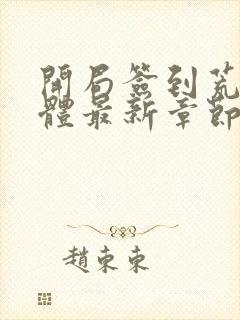 開局簽到荒
體最新章節
趙東東